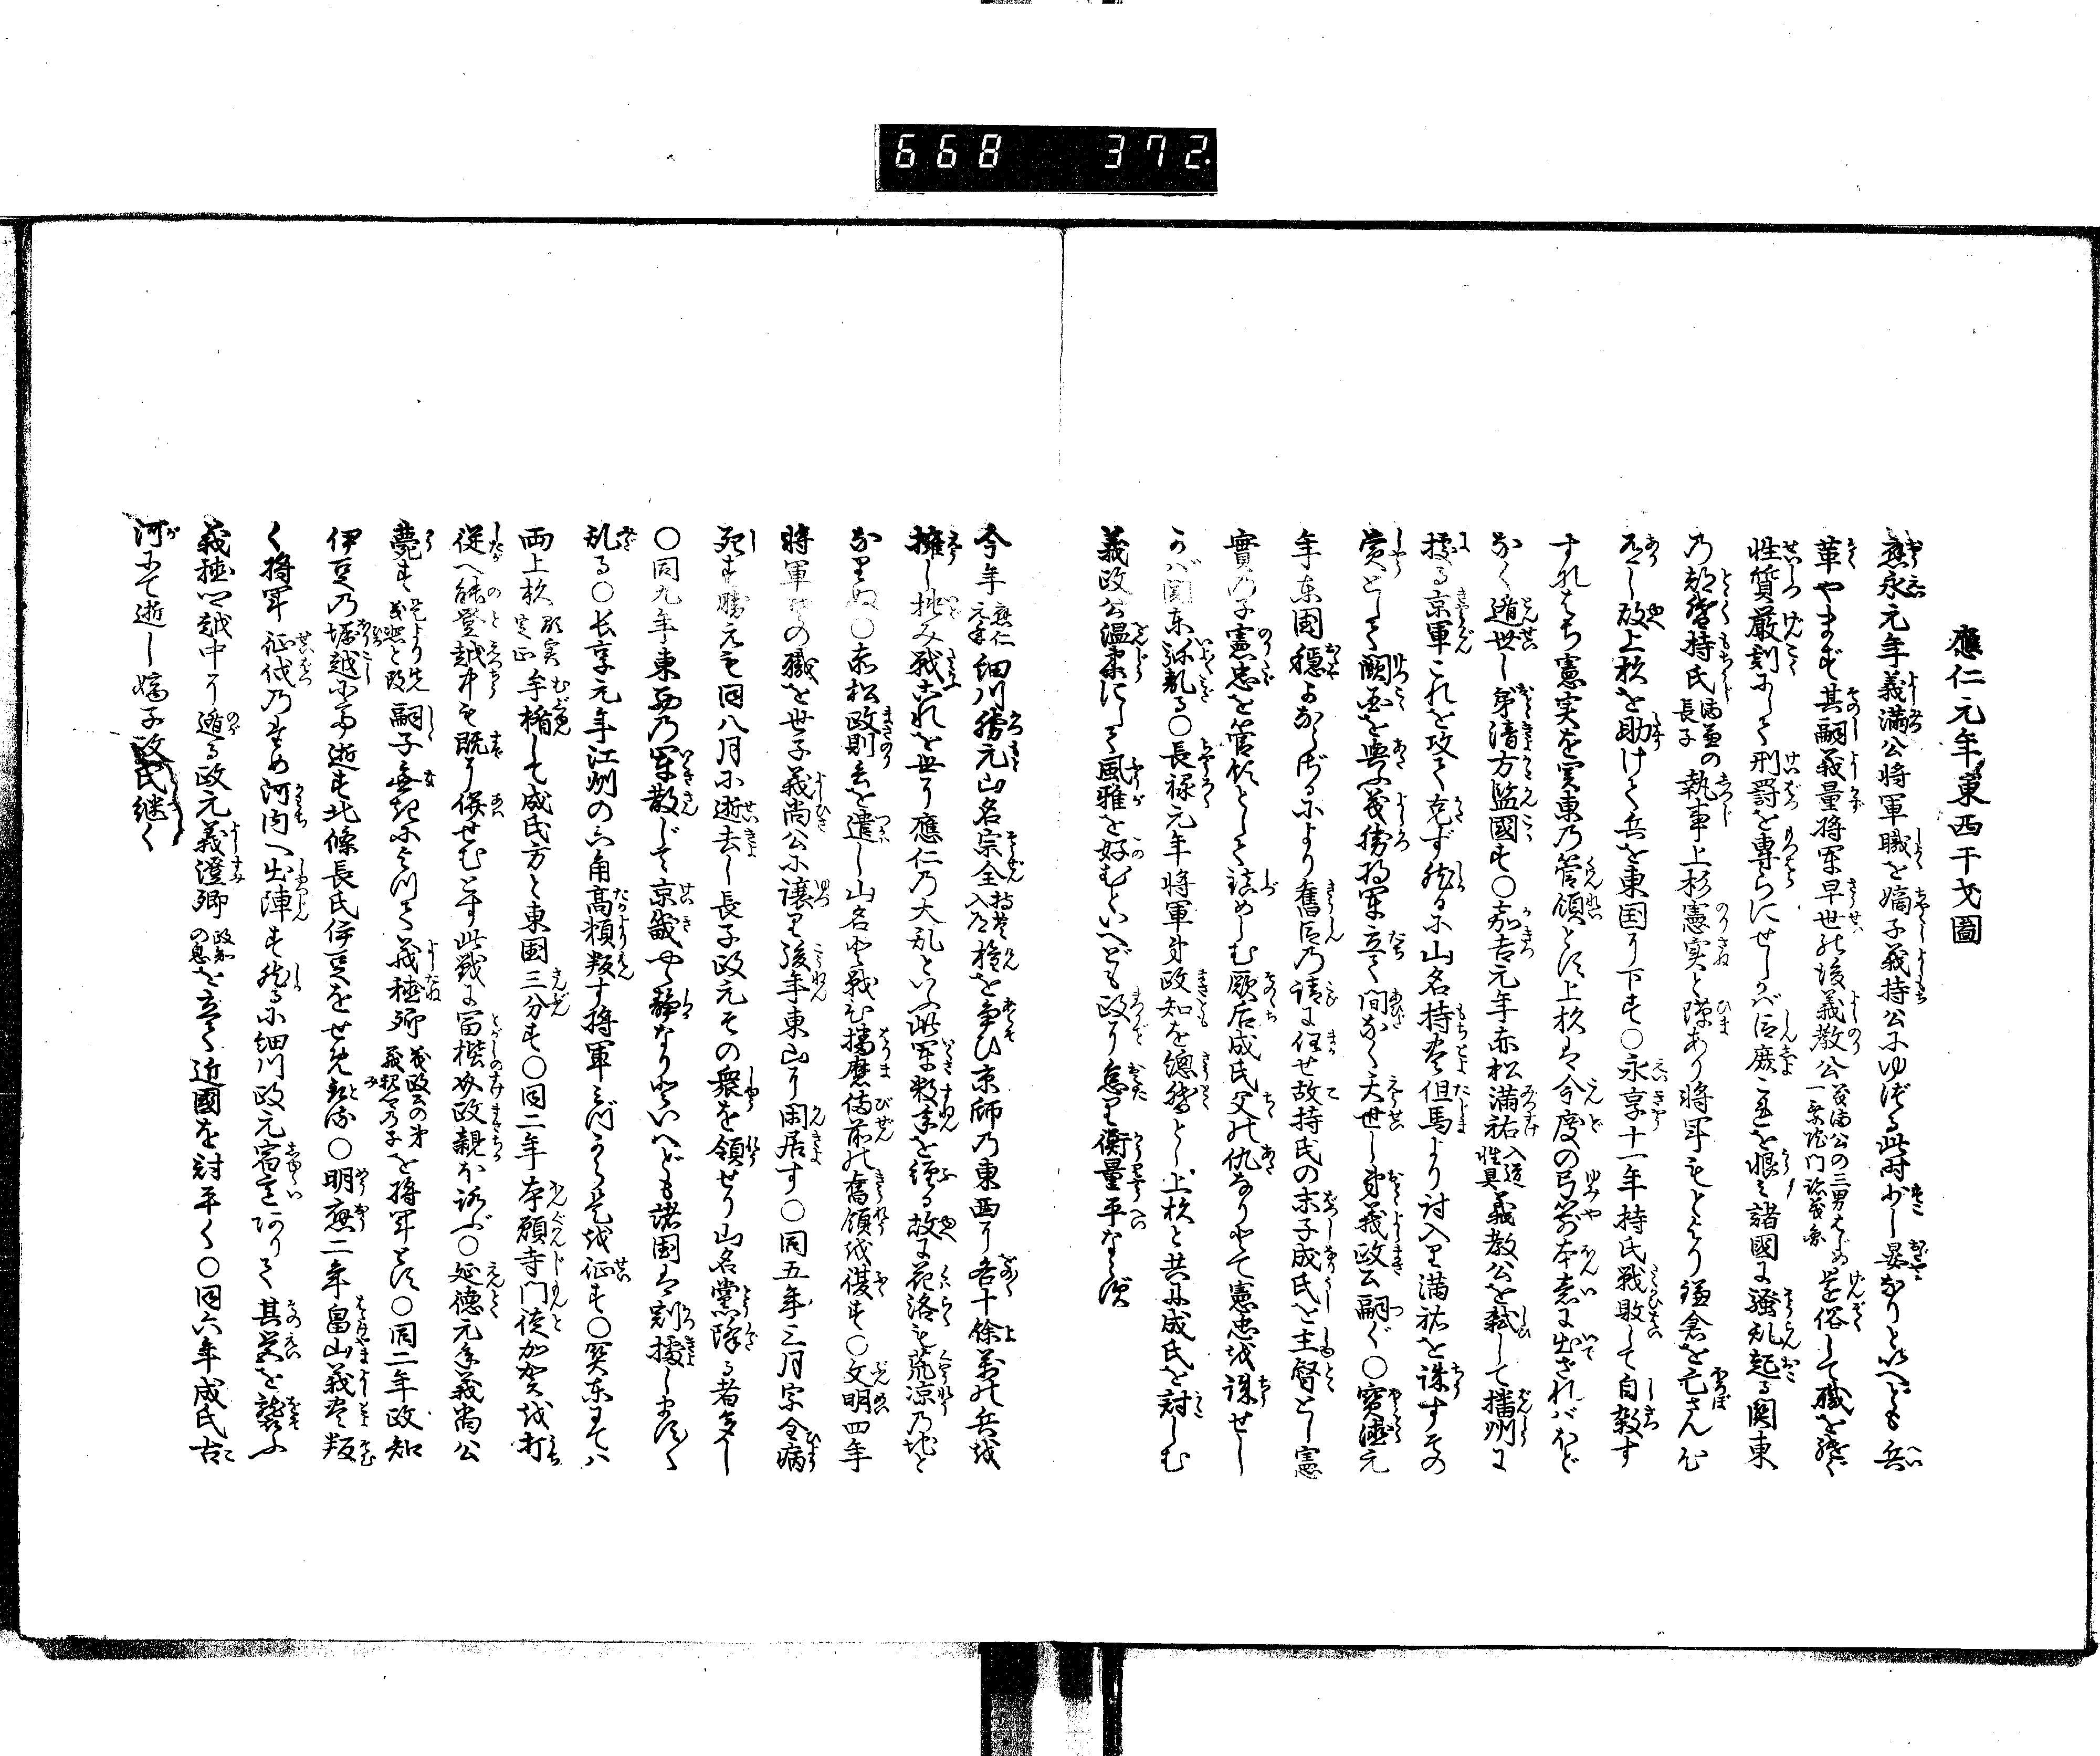 668 372
應仁元年東西干戈圖
應永元年義満公將軍職を嫡子義持公にゆづる此時少し晏なりといへども兵
革やまず其嗣義量将軍早世の後義教公義満公の三男はじめ還俗して職を継ぐ
性質厳刻にして刑罰を專らにせしかば臣庶これを恨み諸國に騒乱起る関東
の都督持氏満兼の長子執事上杉憲実と隙あり将軍もとより鎌倉を亡さん心
有し故上杉を助けて兵を東国に下す○永享十一年持氏戦敗して自殺す
すなはち憲実を関東の管領とす上杉は今度の弓箭本意に出ざればほど
なく遁世し弟清方監國す○嘉吉元年赤松満祐入道性具義教公を弑して播州に
據る京軍これを攻て克ず然るに山名持豊但馬より討入り満祐を誅すその
賞として闕国を與ふ義勝将軍立て間なく夭世し弟義政公嗣ぐ○寶徳元
年东國穏ならざるにより舊臣の請に任せ故持氏の末子成氏を主督とし憲
實の子憲忠を管领として鎮めしむ厥后成氏父の仇なりとて憲忠を誅せし
かば関东弥乱る○長禄元年將軍弟政知を總督とし上杦と共に成氏を討しむ
義政公温柔にして風雅を好むといへども政に怠り衡量平ならず
今年應仁元年細川勝元山名宗全持豊入道権を争ひ京師の東西に各十餘萬の兵を
擁し挑み戦ふこれを世に應仁の大乱といふ此軍数年を經る故に花洛も荒凉の地と
なりぬ○赤松政則兵を遣し山名と戦ひ播磨備前の舊領を復す○文明四年
將軍その職を世子義尚公に譲り後年東山に閑居す○同五年三月宗全病
死す勝元も同八月に逝去し長子政元その衆を領せり山名黨降る者多し
○同九年東西の軍散じて京畿やゝ静なりといへども諸国は割據しますく
乱る○长享元年江州の六角髙頼叛す將軍みづから是を征す○関东にては
両上杦顕実定正牟楯して成氏方と東國三分す○同二年本願寺門徒加賀を打
従へ能登越中も既に併せむとす此戦に冨樫介政親ほろぶ○延德元年義尚公
薨す是より先義熙と改嗣子無きによつて義稙卿義政公の弟義視の子を将軍とす○同二年政知
伊豆の堀越に而逝す北條長氏伊豆を世をとる○明應二年畠山義豊叛
く将軍征伐のため河内へ出陣す然るに細川政元宿意ありて其営を襲ふ
義稙は越中に遁る政元義澄卿政知の息を立て近國を討平く○同六年成氏古
河にて逝し嫡子政氏継く